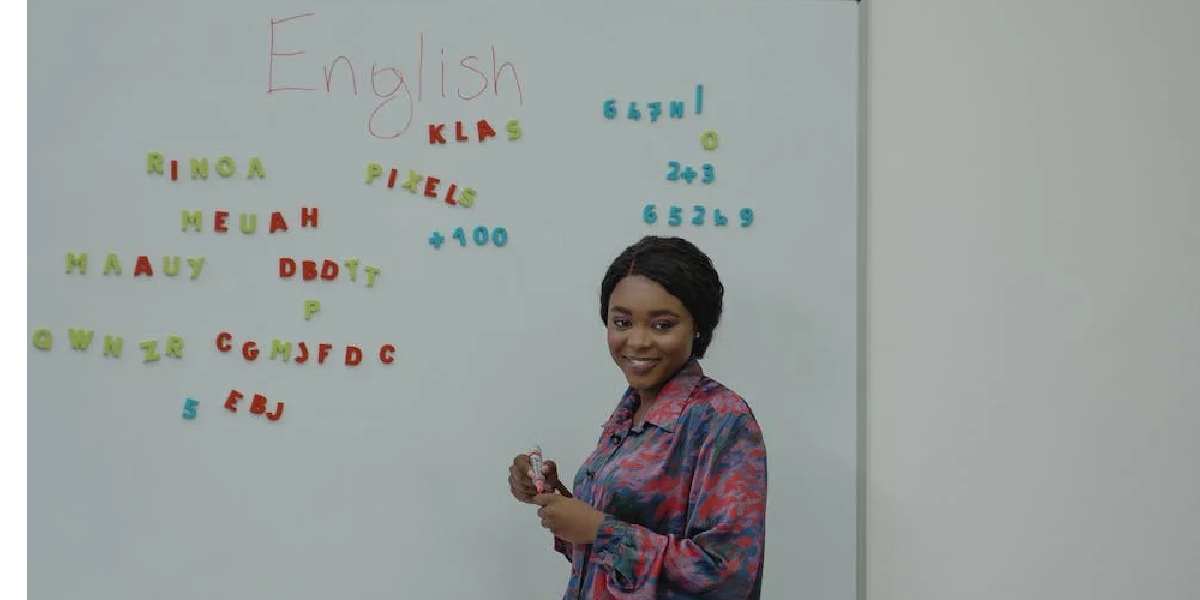 English
KLAS
PIXELS
+100
RINOA
MEUAH
MAAUY
DBDTT
P
QWNZR
CGMJFDC
5 EBJ
647N1
0
2+3
65269